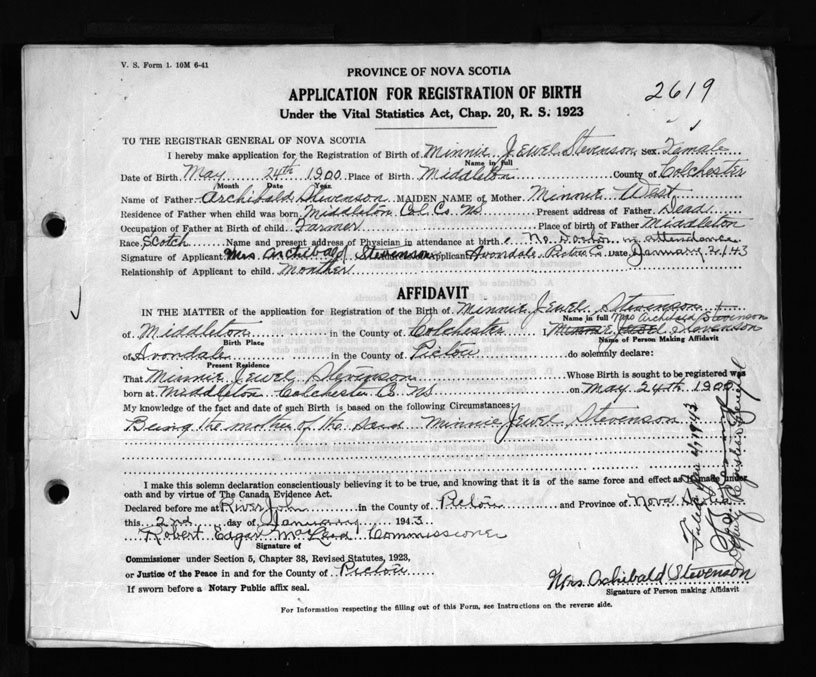 V. S. Form 1. 10M 6-41
PROVINCE OF NOVA SCOTIA
2619
APPLICATION FOR REGISTRATION OF BIRTH
Under the Vital Statistics Act, Chap. 20, R. S. 1923
TO THE REGISTRAR GENERAL OF NOVA SCOTIA
I hereby make application for the Registration of Birth of Minnie Jewel Stevenson Sex Female
Name in full
Date of Birth May 24th 1900 Place of Birth Middleton County of Colchester
Month Date Year
Name of Father Archibald Stevenson MAIDEN NAME of Mother Minnie West
Residence of Father when child was born Middleton Col. Co. NS Present address of Father Dead
Occupation of Father at Birth of child Farmer Place of birth of Father Middleton
Race Scotch Name and present address of Physician in attendance at birth No Doctor in attendance
Signature of Applicant Mrs. Archibald Stevenson Applicant Avondale Pictou Co. Date January 2/43
Relationship of Applicant to child Moather
AFFIDAVIT
IN THE MATTER of the application for Registration of the Birth of Minnie Jewel Stevenson
Name in full Mrs Archibald Stevenson
of Middleton in the County of Colchester I Minnie Jewel Stevenson
Birth Place Name of Person Making Affidavit
of Avondale in the County of Pictou do solemnly declare:
Present Residence
That Minnie Jewel Stevenson Whose Birth is sought to be registered was
born at Middleton Colchester Co NS on May 24th 1900
My knowledge of the fact and date of such Birth is based on the following Circumstances:
Being the mother of the Minnie Jewel Stevenson
I make this solemn declaration conscientiously believing it to be true, and knowing that it is of the same force and effect as if made under
oath and by virtue of The Canada Evidence Act.
Declared before me at River John in the County of Pictou and Province of Nova Scotia
this 2nd day of January 1943
Robert Edgar Commissioner
Signature of
Commissioner under Section 5, Chapter 38, Revised Statutes, 1923,
or Justice of the Peace in and for the County of Pictou
If sworn before a Notary Public affix seal.
Mrs. Archibald Stevenson
Signature of Person making Affidavit
For Information respecting the filling out of this Form, see Instructions on the reverse side.
Deputy Registrar General